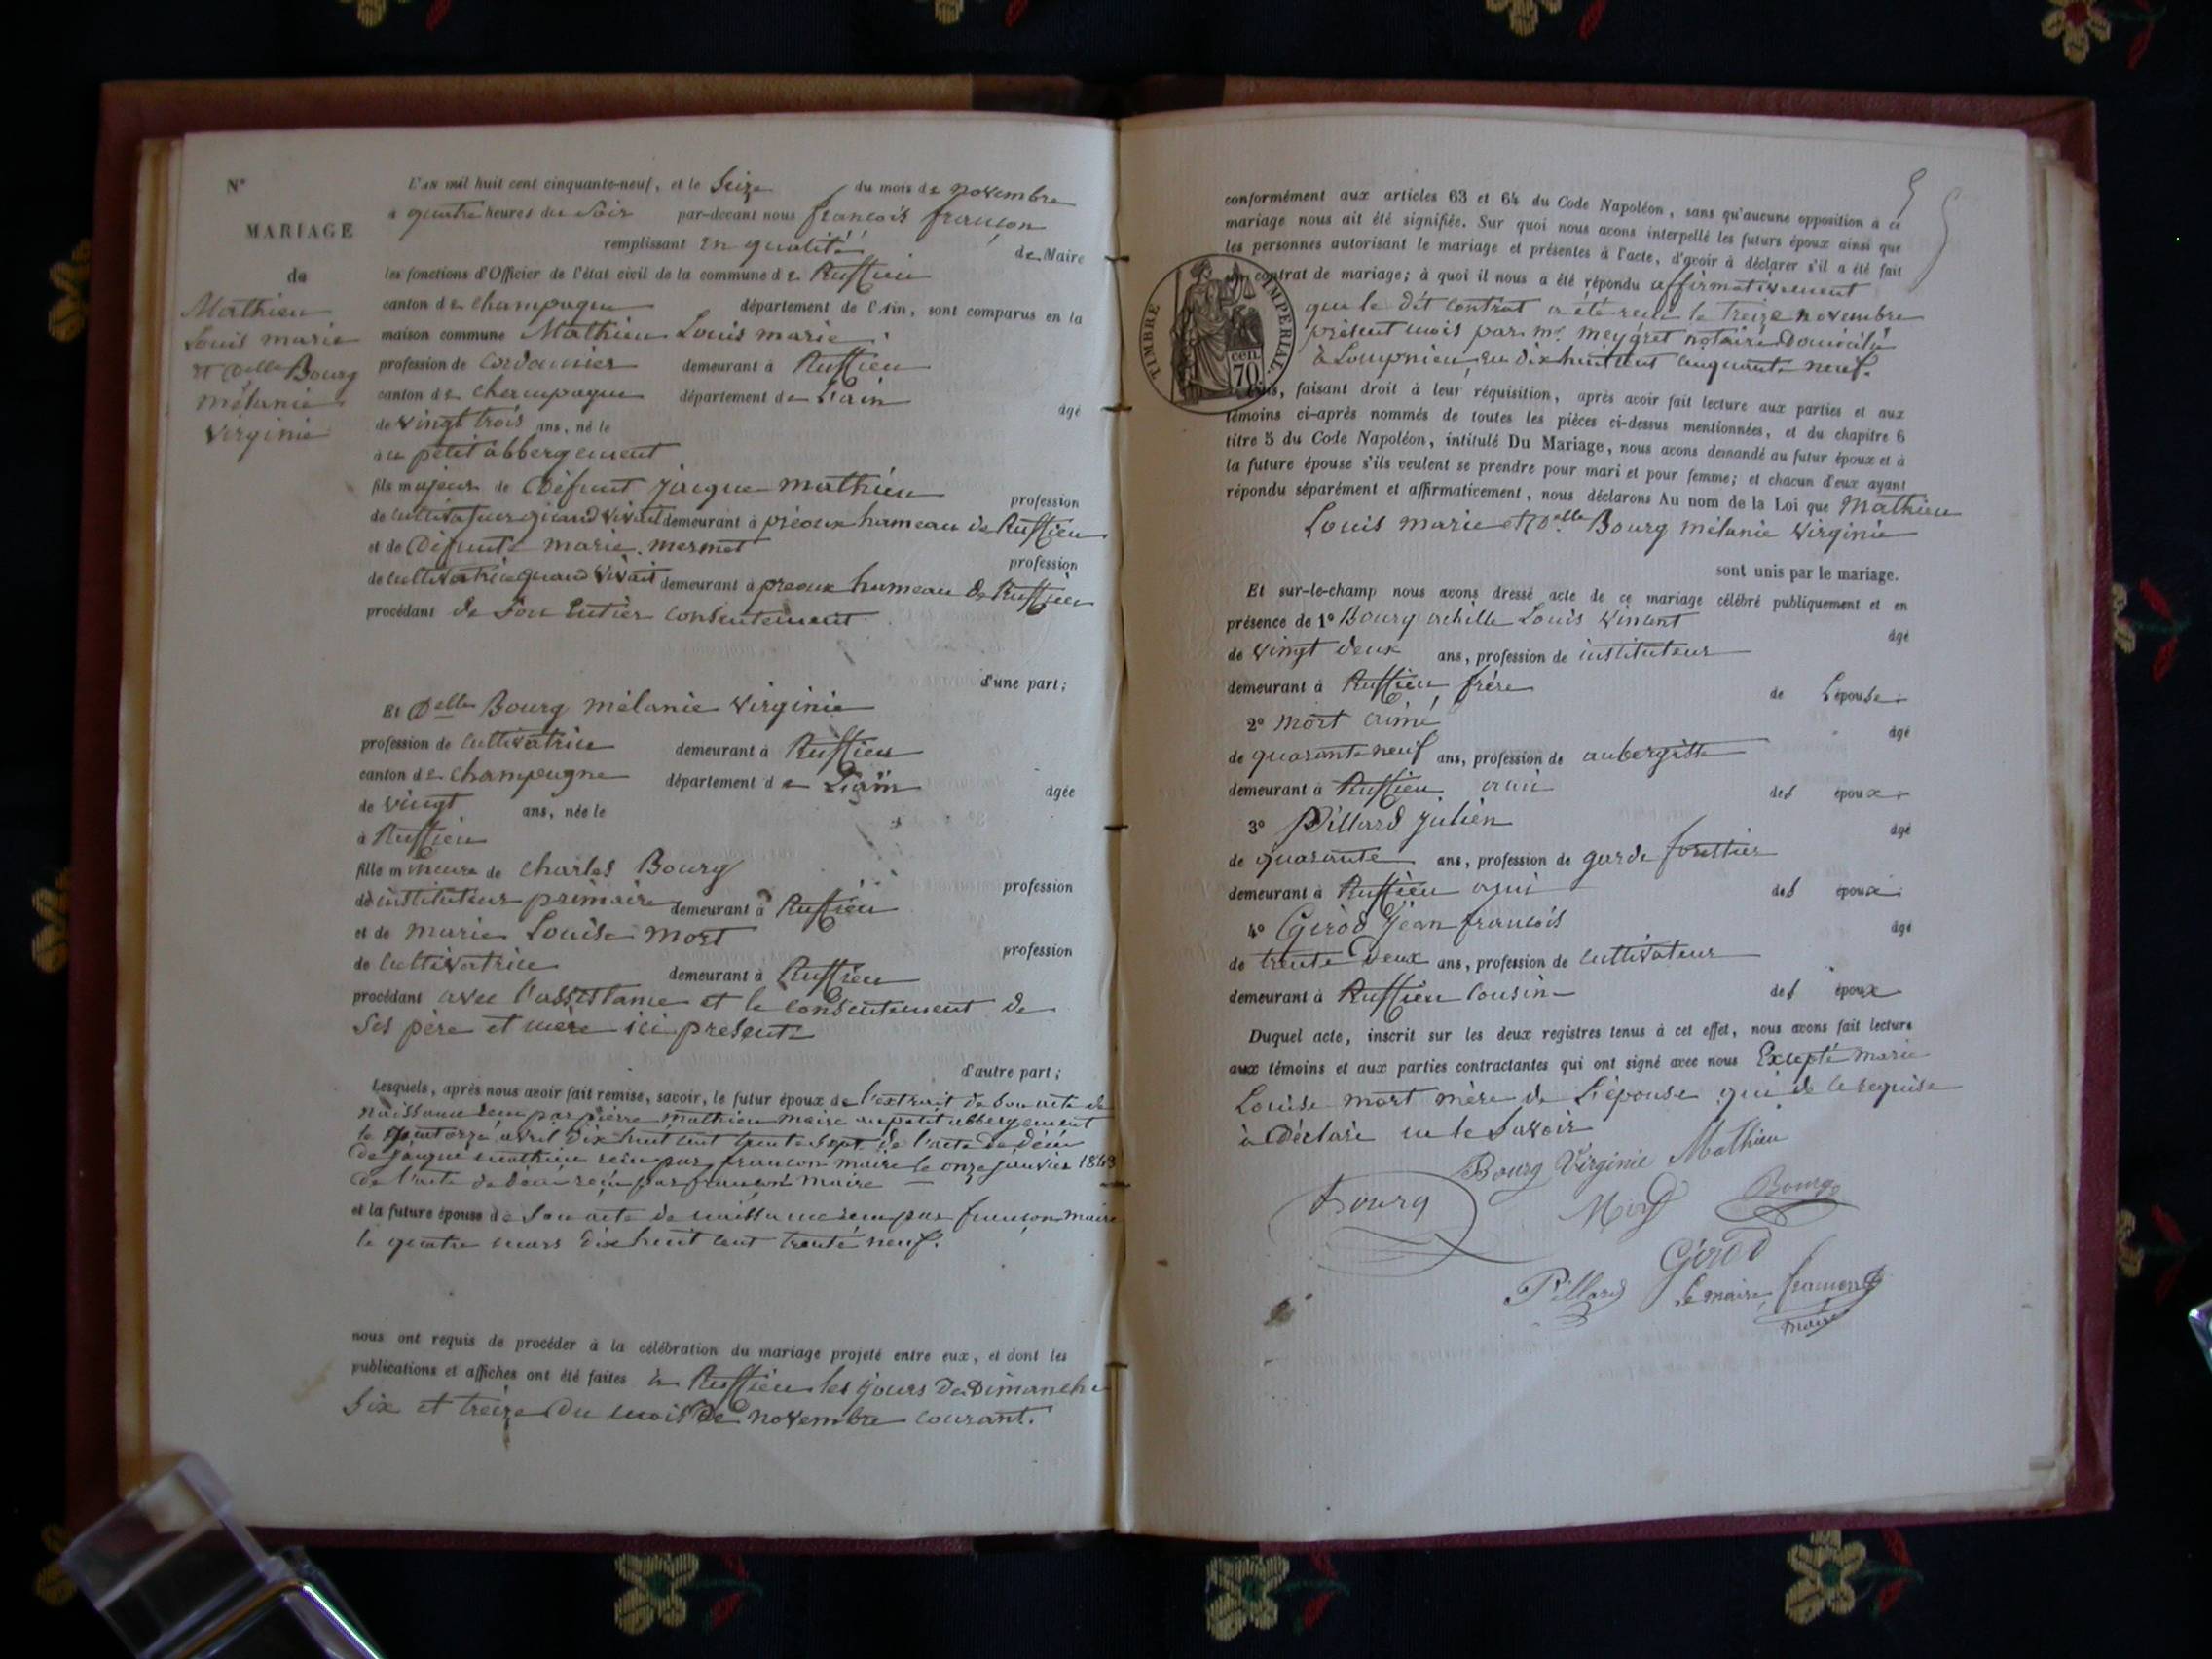 N°
MARIAGE
de
Mathieu
Louis marie
et Delle Bourg
mélanie
Virginie
L'an mil huit cent cinquante-neuf, et le Seize du mois de novembre
à quatre heures du Soir par-devant nous françois françon
remplissant en qualité de Maire
les fonctions d'Officier de l'état civil de la commune de Ruffieu
canton de champagne département de l'Ain, sont comparus en la
maison commune Mathieu Louis marie
profession de Cordonnier demeurant à Ruffieu
canton de champagne département de L'ain âgé
de vingt trois ans, né le
au petit abbergement
fils majeur de Défunt jacque mathieu profession
de cultivateur quand vivait demeurant à préoux hameau de Ruffieu
et de Défunte marie mermet profession
de cultivatrice quand vivait demeurant à préoux hameau de Ruffieu
procédant de son entier consentement
d'une part;
Et Delle Bourg mélanie Virginie
profession de cultivatrice demeurant à Ruffieu
canton de champagne département de L'ain âgée
de vingt ans, née le
à Ruffieu
fille mineure de charles Bourg profession
de instituteur primaire demeurant à Ruffieu
et de marie Louise mort profession
de cultivatrice demeurant à Ruffieu
procédant avec l'assistance et le consentement de
ses père et mère ici présents
d'autre part;
Lesquels, après nous avoir fait remise, savoir, le futur époux de l'extrait de son acte de
naissance reçu par pierre mathieu maire au petit abbergement
le quatorze avril dix huit cent trente sept de l'acte de décès
de jacque mathieu reçu par françon maire le onze janvier 1843
de l'acte de décès reçu par françon maire
et la future épouse de son acte de naissance reçu par françon maire
le quatre mars dix huit cent trente neuf.
nous ont requis de procéder à la célébration du mariage projeté entre eux, et dont les
publications et affiches ont été faites à Ruffieu les jours de Dimanche
Six et treize du mois de novembre courant.
5
conformément aux articles 63 et 64 du Code Napoléon, sans qu'aucune opposition à ce
mariage nous ait été signifiée. Sur quoi nous avons interpellé les futurs époux ainsi que
les personnes autorisant le mariage et présentes à l'acte, d'avoir à déclarer s'il a été fait
un contrat de mariage; à quoi il nous a été répondu affirmativement
que le dit contrat a été reçu le treize novembre
présent mois par me. meygret notaire domicilié
à Lompnieu, en dix huit cent cinquante neuf.
TIMBRE IMPÉRIAL.
cen.
70
Puis, faisant droit à leur réquisition, après avoir fait lecture aux parties et aux
témoins ci-après nommés de toutes les pièces ci-dessus mentionnées, et du chapitre 6
titre 5 du Code Napoléon, intitulé Du Mariage, nous avons demandé au futur époux et à
la future épouse s'ils veulent se prendre pour mari et pour femme; et chacun d'eux ayant
répondu séparément et affirmativement, nous déclarons Au nom de la Loi que Mathieu
Louis marie et Delle Bourg mélanie Virginie
sont unis par le mariage.
Et sur-le-champ nous avons dressé acte de ce mariage célébré publiquement et en
présence de 1° Bourg achille Louis Vinant âgé
de vingt deux ans, profession de instituteur
demeurant à Ruffieu frère de L'épouse
2° mort aimé âgé
de quarante neuf ans, profession de aubergiste
demeurant à Ruffieu ami des époux
3° Pillard julien âgé
de quarante ans, profession de garde forettier
demeurant à Ruffieu ami des époux
4° Girod jean françois âgé
de trente deux ans, profession de cultivateur
demeurant à Ruffieu cousin des époux
Duquel acte, inscrit sur les deux registres tenus à cet effet, nous avons fait lecture
aux témoins et aux parties contractantes qui ont signé avec nous Excepté marie
Louise mort mère de L'épouse qui de ce requise
à déclaré ne le savoir
Bourg Virginie Mathieu
Bourg Mort Bourg
Girod
Pillard le maire françon
maire